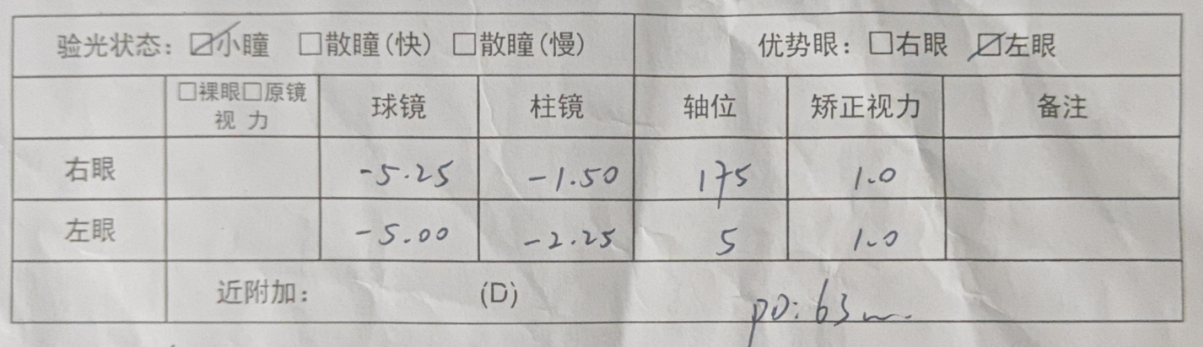 验光状态：☑小瞳 □散瞳(快) □散瞳(慢) 优势眼：□右眼 ☑左眼
□裸眼□原镜视力 球镜 柱镜 轴位 矫正视力 备注
右眼 -5.25 -1.50 175 1.0
左眼 -5.00 -2.25 5 1.0
近附加： (D) PD: 63